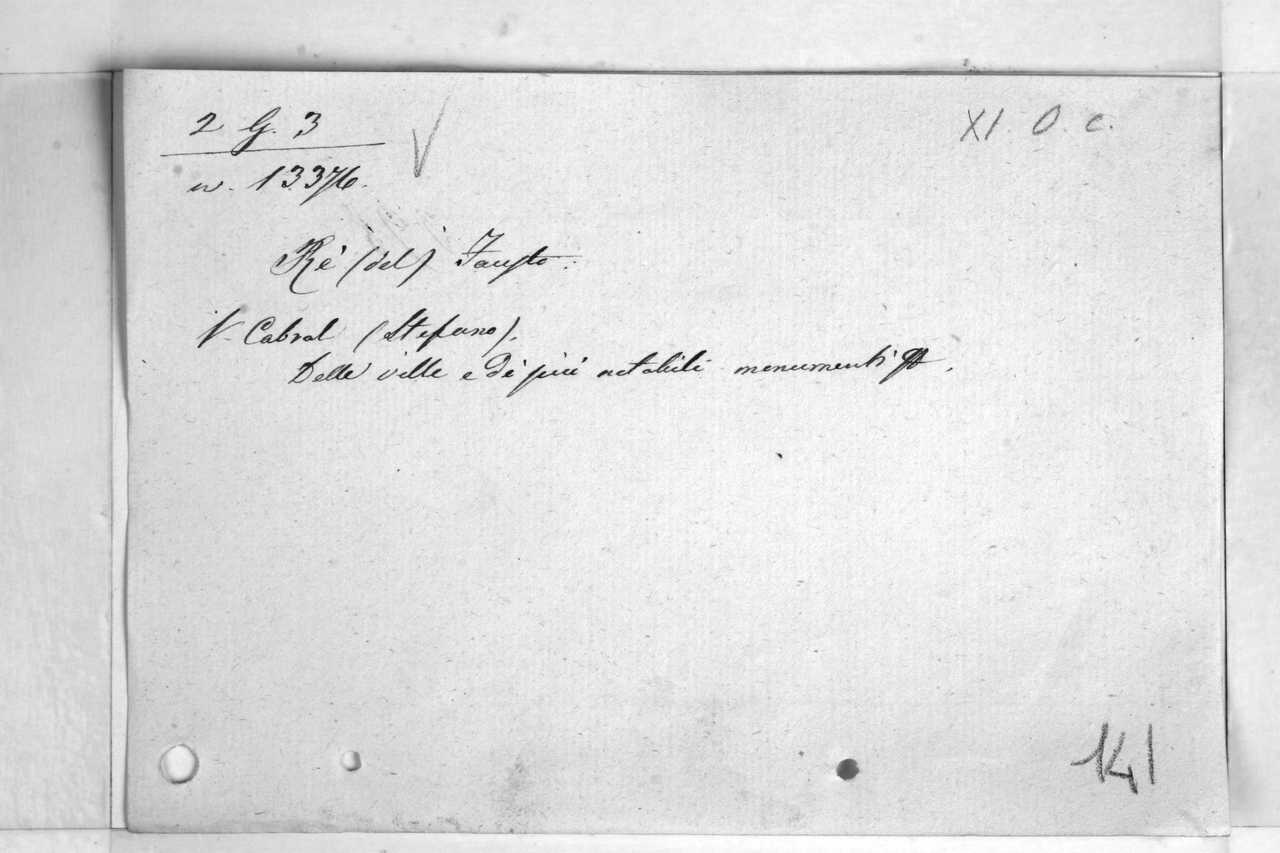 2 G. 3
XI. O. c.
n. 13376.
Ré (del) Fausto.
V. Cabral (Stefano).
Delle ville e de' più notabili monumenti
141